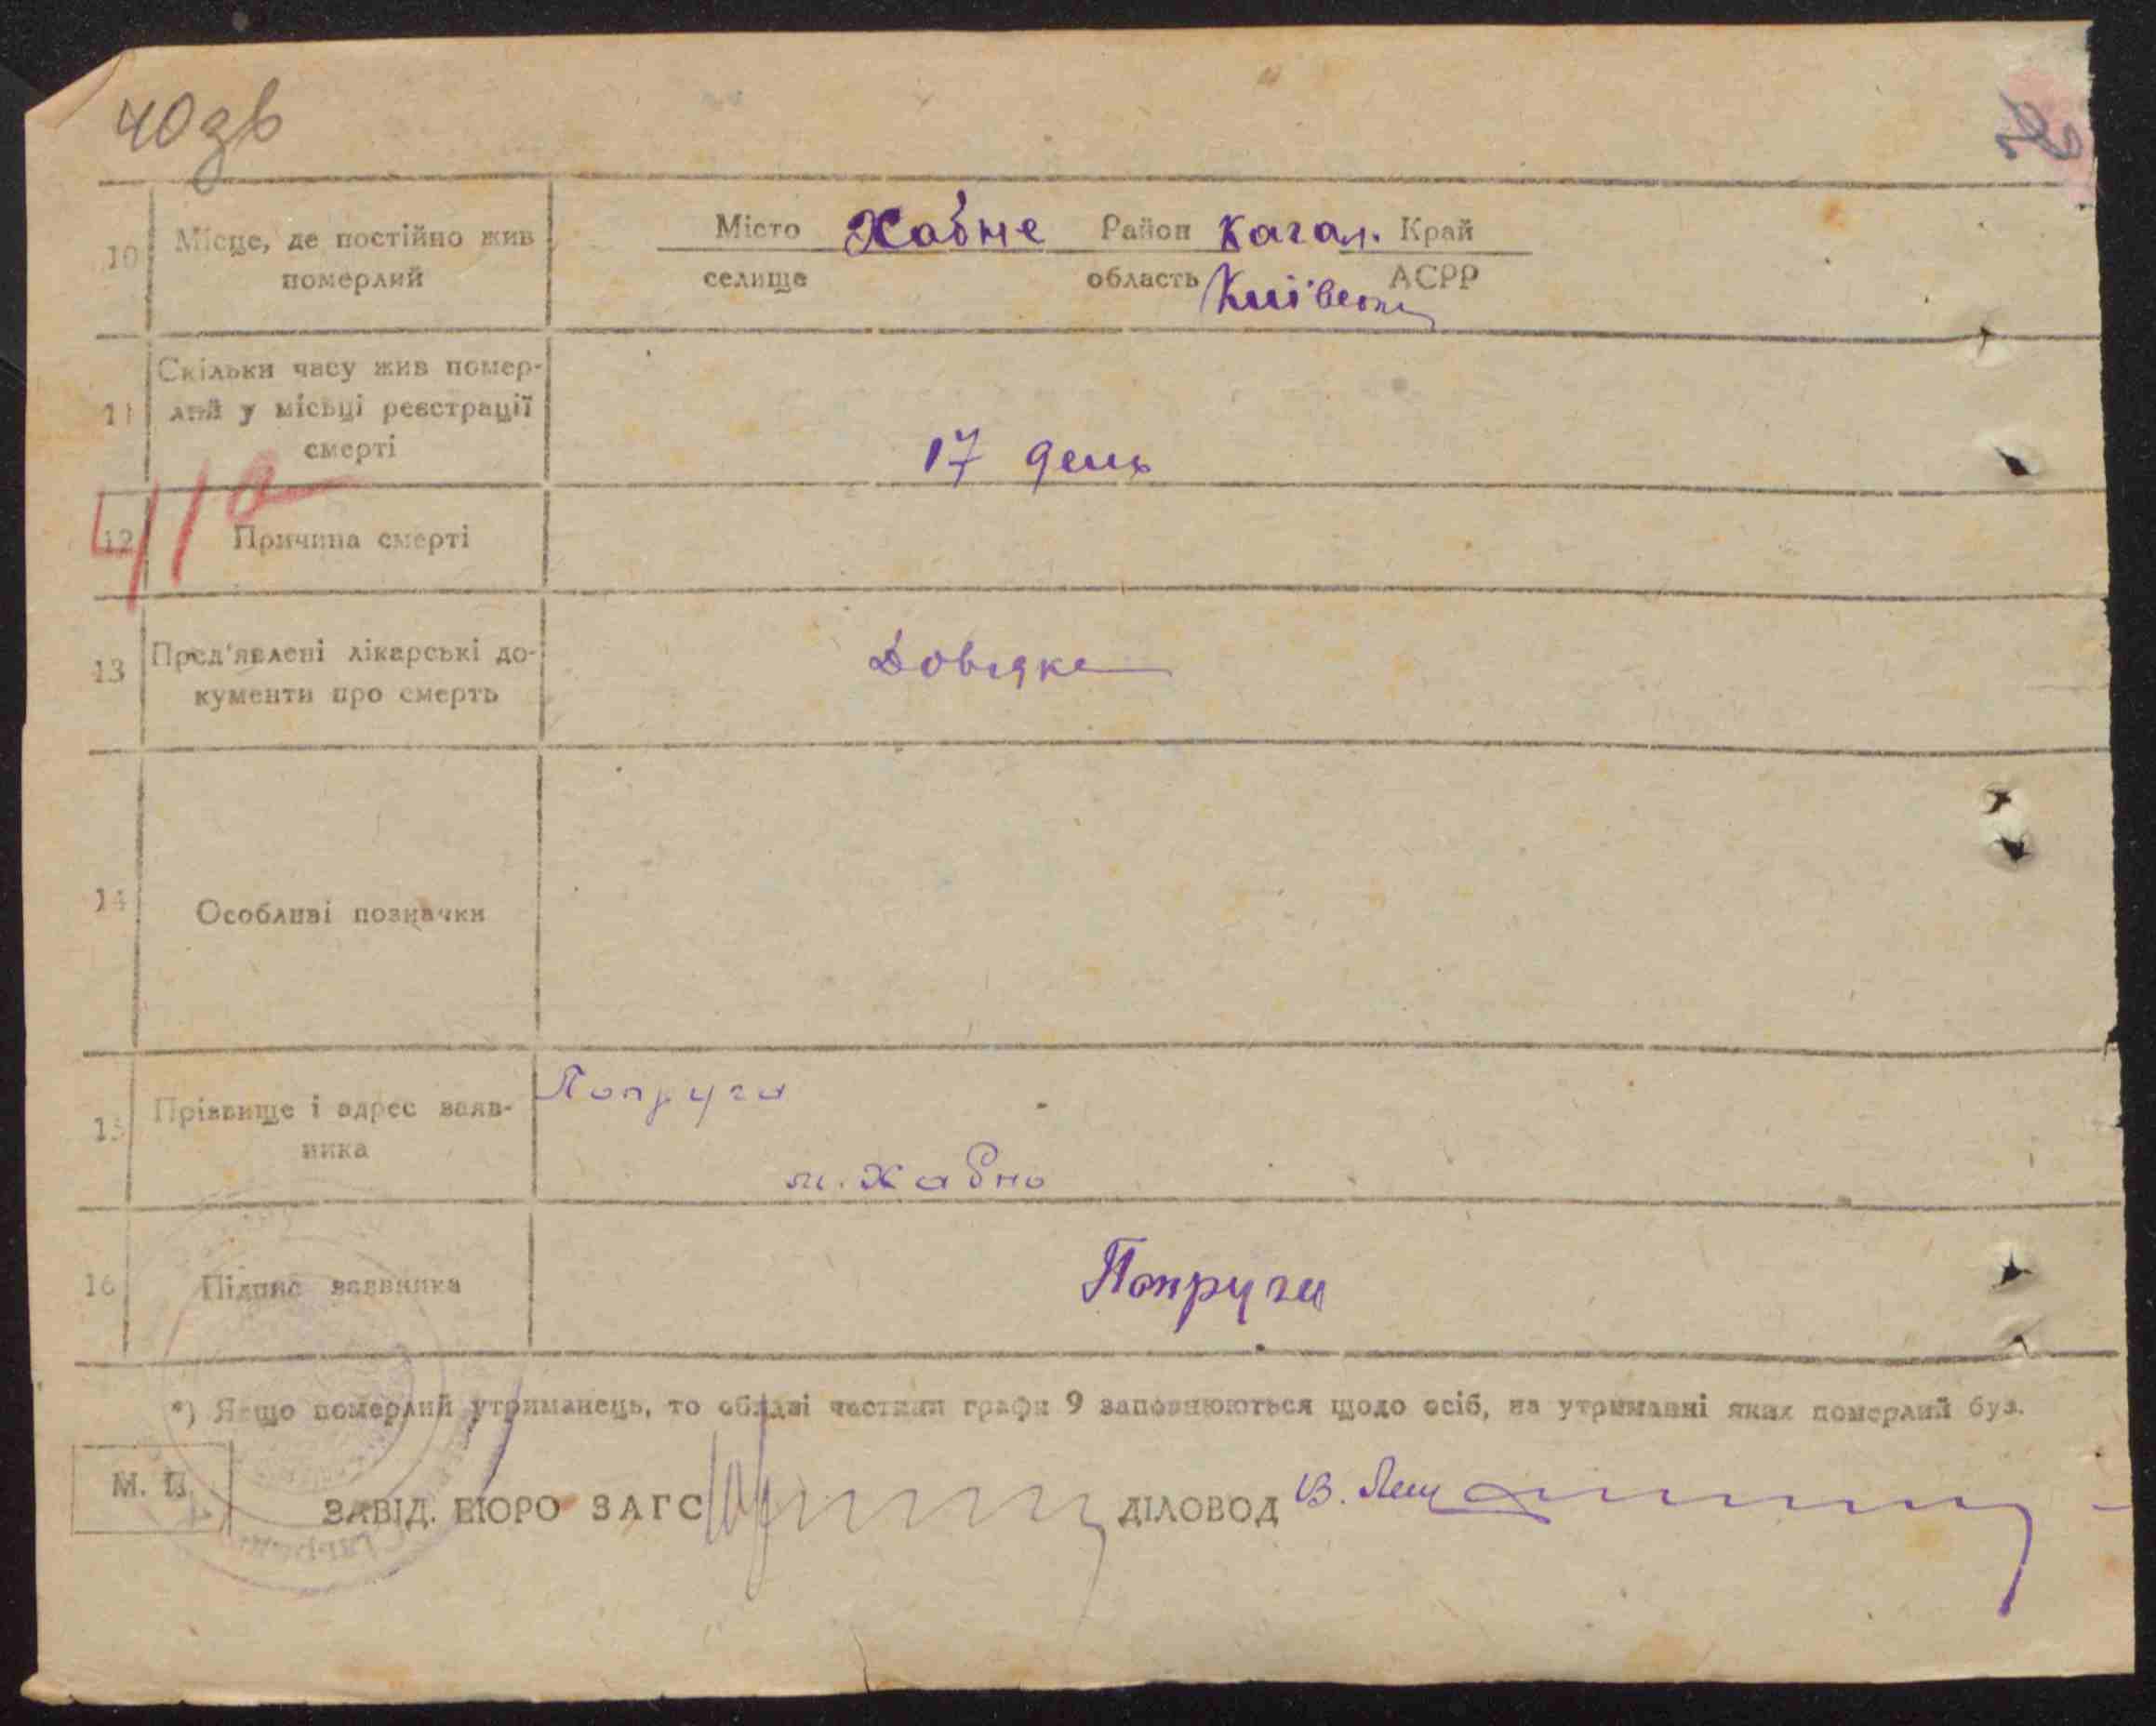 40зв
10 Місце, де постійно жив померлий
Місто Хабне Район Кагал. Край
селище область Київськ АСРР
11 Скільки часу жив помер-
лий у місьці реєстрації
смерті
17 день
12 Причина смерті
13 Пред'явлені лікарські до-
кументи про смерть
Довідка
14 Особливі позначки
15 Прізвище і адрес заяв-
ника
Попруга
м. Хабно
16 Підпис заявника
Попруга
*) Якщо померлий утриманець, то обидві частини графи 9 заповнюються щодо осіб, на утриманні яких померлий був.
М. П.
ЗАВІД. БЮРО ЗАГС ДІЛОВОД